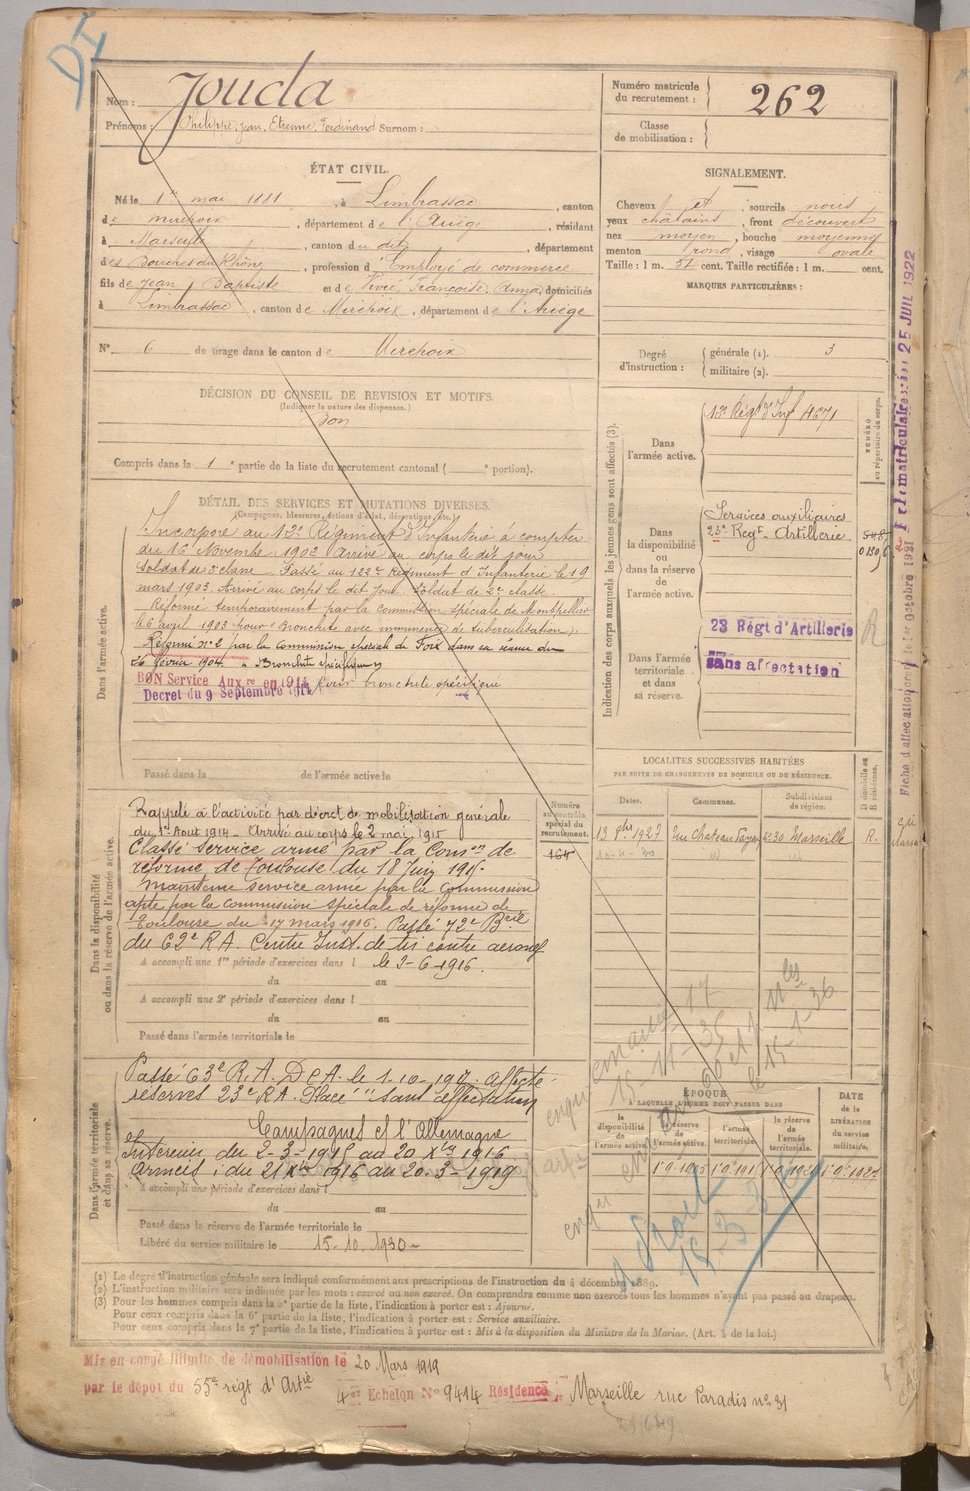 DI
Nom : Jouda
Prénoms : Philippe, Jean, Etienne, Ferdinand Surnom :
Numéro matricule du recrutement : 262
Classe de mobilisation :
ÉTAT CIVIL.
Né le 1er mai 1881, à Limbrassac, canton
de Mirepoix, département de l'Ariège, résidant
à Marseille, canton du dit, département
des Bouches du Rhône, profession d'Employé de commerce
fils de Jean Baptiste et de Vivié, Françoise, Anna, domiciliés
à Limbrassac, canton de Mirepoix, département de l'Ariège
N° 6 de tirage dans le canton de Mirepoix
SIGNALEMENT.
Cheveux et, sourcils noirs
yeux châtains, front découvert
nez moyen, bouche moyenne
menton rond, visage ovale
Taille : 1 m. 57 cent. Taille rectifiée : 1 m. cent.
MARQUES PARTICULIÈRES :
Degré d'instruction : générale (1). 3
militaire (2).
DÉCISION DU CONSEIL DE REVISION ET MOTIFS.
(Indiquer la nature des dispenses.)
Bon
Compris dans la 1e partie de la liste du recrutement cantonal ( e portion).
DÉTAIL DES SERVICES ET MUTATIONS DIVERSES.
(Campagnes, blessures, actions d'éclat, décorations, etc.)
Dans l'armée active.
Incorporé au 12e Régiment d'Infanterie à compter
du 16 Novembre 1902 arrivé au corps le dit jour
soldat de 2e classe. Passé au 122e Régiment d'Infanterie le 19
mars 1903. Arrivé au corps le dit jour. Soldat de 2e classe.
Réformé temporairement par la commission spéciale de Montpellier
le 6 avril 1903 pour "Bronchite avec imminence de tuberculisation".
Réformé n° 2 par la commission spéciale de Foix dans sa séance du
26 février 1904.
BON Service Auxre en 1914 pour bronchite spécifique
Décret du 9 Septembre 1914
Passé dans la de l'armée active le
Indication des corps auxquels les jeunes gens sont affectés (3).
NUMÉRO au répertoire du corps.
Dans l'armée active.
Dans la disponibilité ou dans la réserve de l'armée active.
Services auxiliaires
23e Regt Artillerie
Dans l'armée territoriale et dans sa réserve.
23 Régt d'Artillerie
sans affectation
LOCALITÉS SUCCESSIVES HABITÉES
PAR SUITE DE CHANGEMENTS DE DOMICILE OU DE RÉSIDENCE.
Dates. Communes. Subdivisions de région. D domicile ou R résidence.
Marseille R.
Dans la disponibilité ou dans la réserve de l'armée active.
Numéro au contrôle spécial du recrutement.
164
Rappelé à l'activité par décret de mobilisation générale
du 1er Aout 1914 - Arrivé au corps le 2 mai 1915
Classé service armé par la Comon de
réforme de Toulouse du 18 Juin 1915.
Maintenu service armé par la Commission
apte par la commission spéciale de réforme de
Toulouse du 17 mars 1916. Passé 72e Brie
du 62e R.A. Centre Inst. de tir contre aéronef
le 3-6-1916.
A accompli une 1re période d'exercices dans l
du au
A accompli une 2e période d'exercices dans l
du au
Passé dans l'armée territoriale le
Dans l'armée territoriale et dans sa réserve.
Passé 63e R.A. D.C.A. le 1-10-1917. affecté
réserves 23e R.A. Placé "sans affectation
Campagnes ct l'Allemagne
Intérieur du 2-3-1915 au 20 Xbre 1916
Armées : du 21 Xbre 1916 au 20-3-1919
A accompli une période d'exercices dans l
du au
Passé dans la réserve de l'armée territoriale le
Libéré du service militaire le 15-10-1930
ÉPOQUE
À LAQUELLE L'HOMME DOIT PASSER DANS
la disponibilité de l'armée active. la réserve de l'armée active. l'armée territoriale. la réserve de l'armée territoriale.
DATE de la LIBÉRATION du service militaire.
(1) Le degré d'instruction générale sera indiqué conformément aux prescriptions de l'instruction du 4 décembre 1889.
(2) L'instruction militaire sera indiquée par les mots : exercé ou non exercé. On comprendra comme non exercés tous les hommes n'ayant pas passé au drapeau.
(3) Pour les hommes compris dans la 5e partie de la liste, l'indication à porter est : Ajourné.
Pour ceux compris dans la 6e partie de la liste, l'indication à porter est : Service auxiliaire.
Pour ceux compris dans la 7e partie de la liste, l'indication à porter est : Mis à la disposition du Ministre de la Marine. (Art. 4 de la loi.)
Mis en congé illimité de démobilisation le 20 Mars 1919
par le dépôt du 55e régt d'Artie
4er Echelon N° 9414 Résidence : Marseille rue Paradis n° 31
25 JUIL 1922